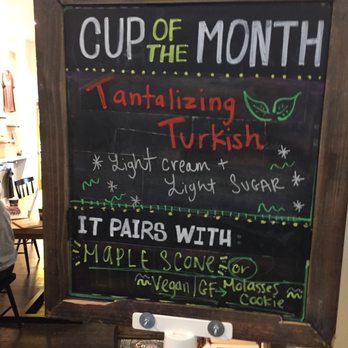 CUP OF THE MONTH
Tantalizing
Turkish
* Light Cream +
Light SUGAR *
IT PAIRS WITH:
MAPLE SCONE or
Vegan/GF→ Molasses
Cookie